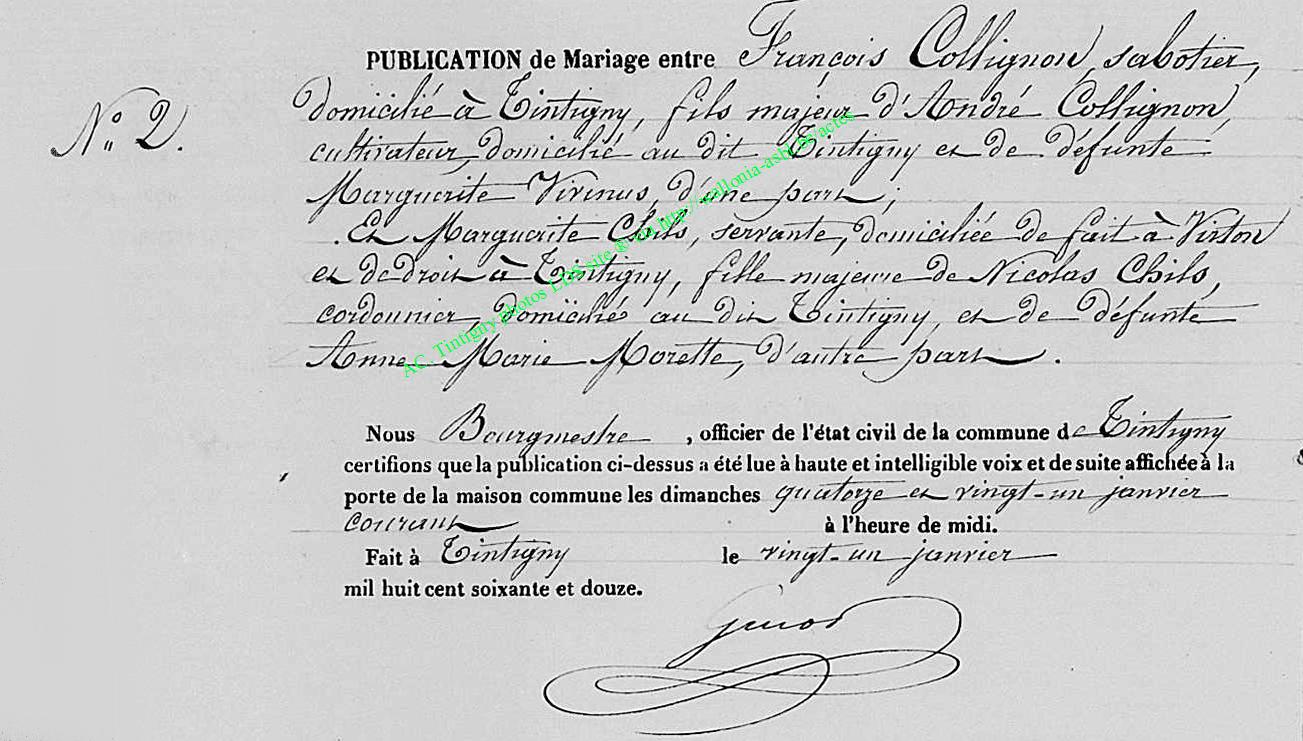 PUBLICATION de Mariage entre François Collignon, sabotier,
N° 2.
domicilié à Tintigny, fils majeur d'André Collignon,
cultivateur, domicilié au dit Tintigny et de défunte
Marguerite Virinus, d'une part;
Et Marguerite Chils, servante, domiciliée de fait à Virton
et de droit à Tintigny, fille majeure de Nicolas Chils,
cordonnier, domicilié au dit Tintigny, et de défunte
Anne Marie Morette, d'autre part.
AC. Tintigny photos LDS site ® ou http://wallonia-asbl.be/actes
Nous Bourgmestre, officier de l'état civil de la commune de Tintigny
certifions que la publication ci-dessus a été lue à haute et intelligible voix et de suite affichée à la
porte de la maison commune les dimanches quatorze et vingt-un janvier
courant à l'heure de midi.
Fait à Tintigny le vingt-un janvier
mil huit cent soixante et douze.